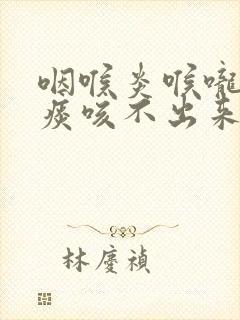 咽喉炎喉嚨
痰咳不出來
林慶禎